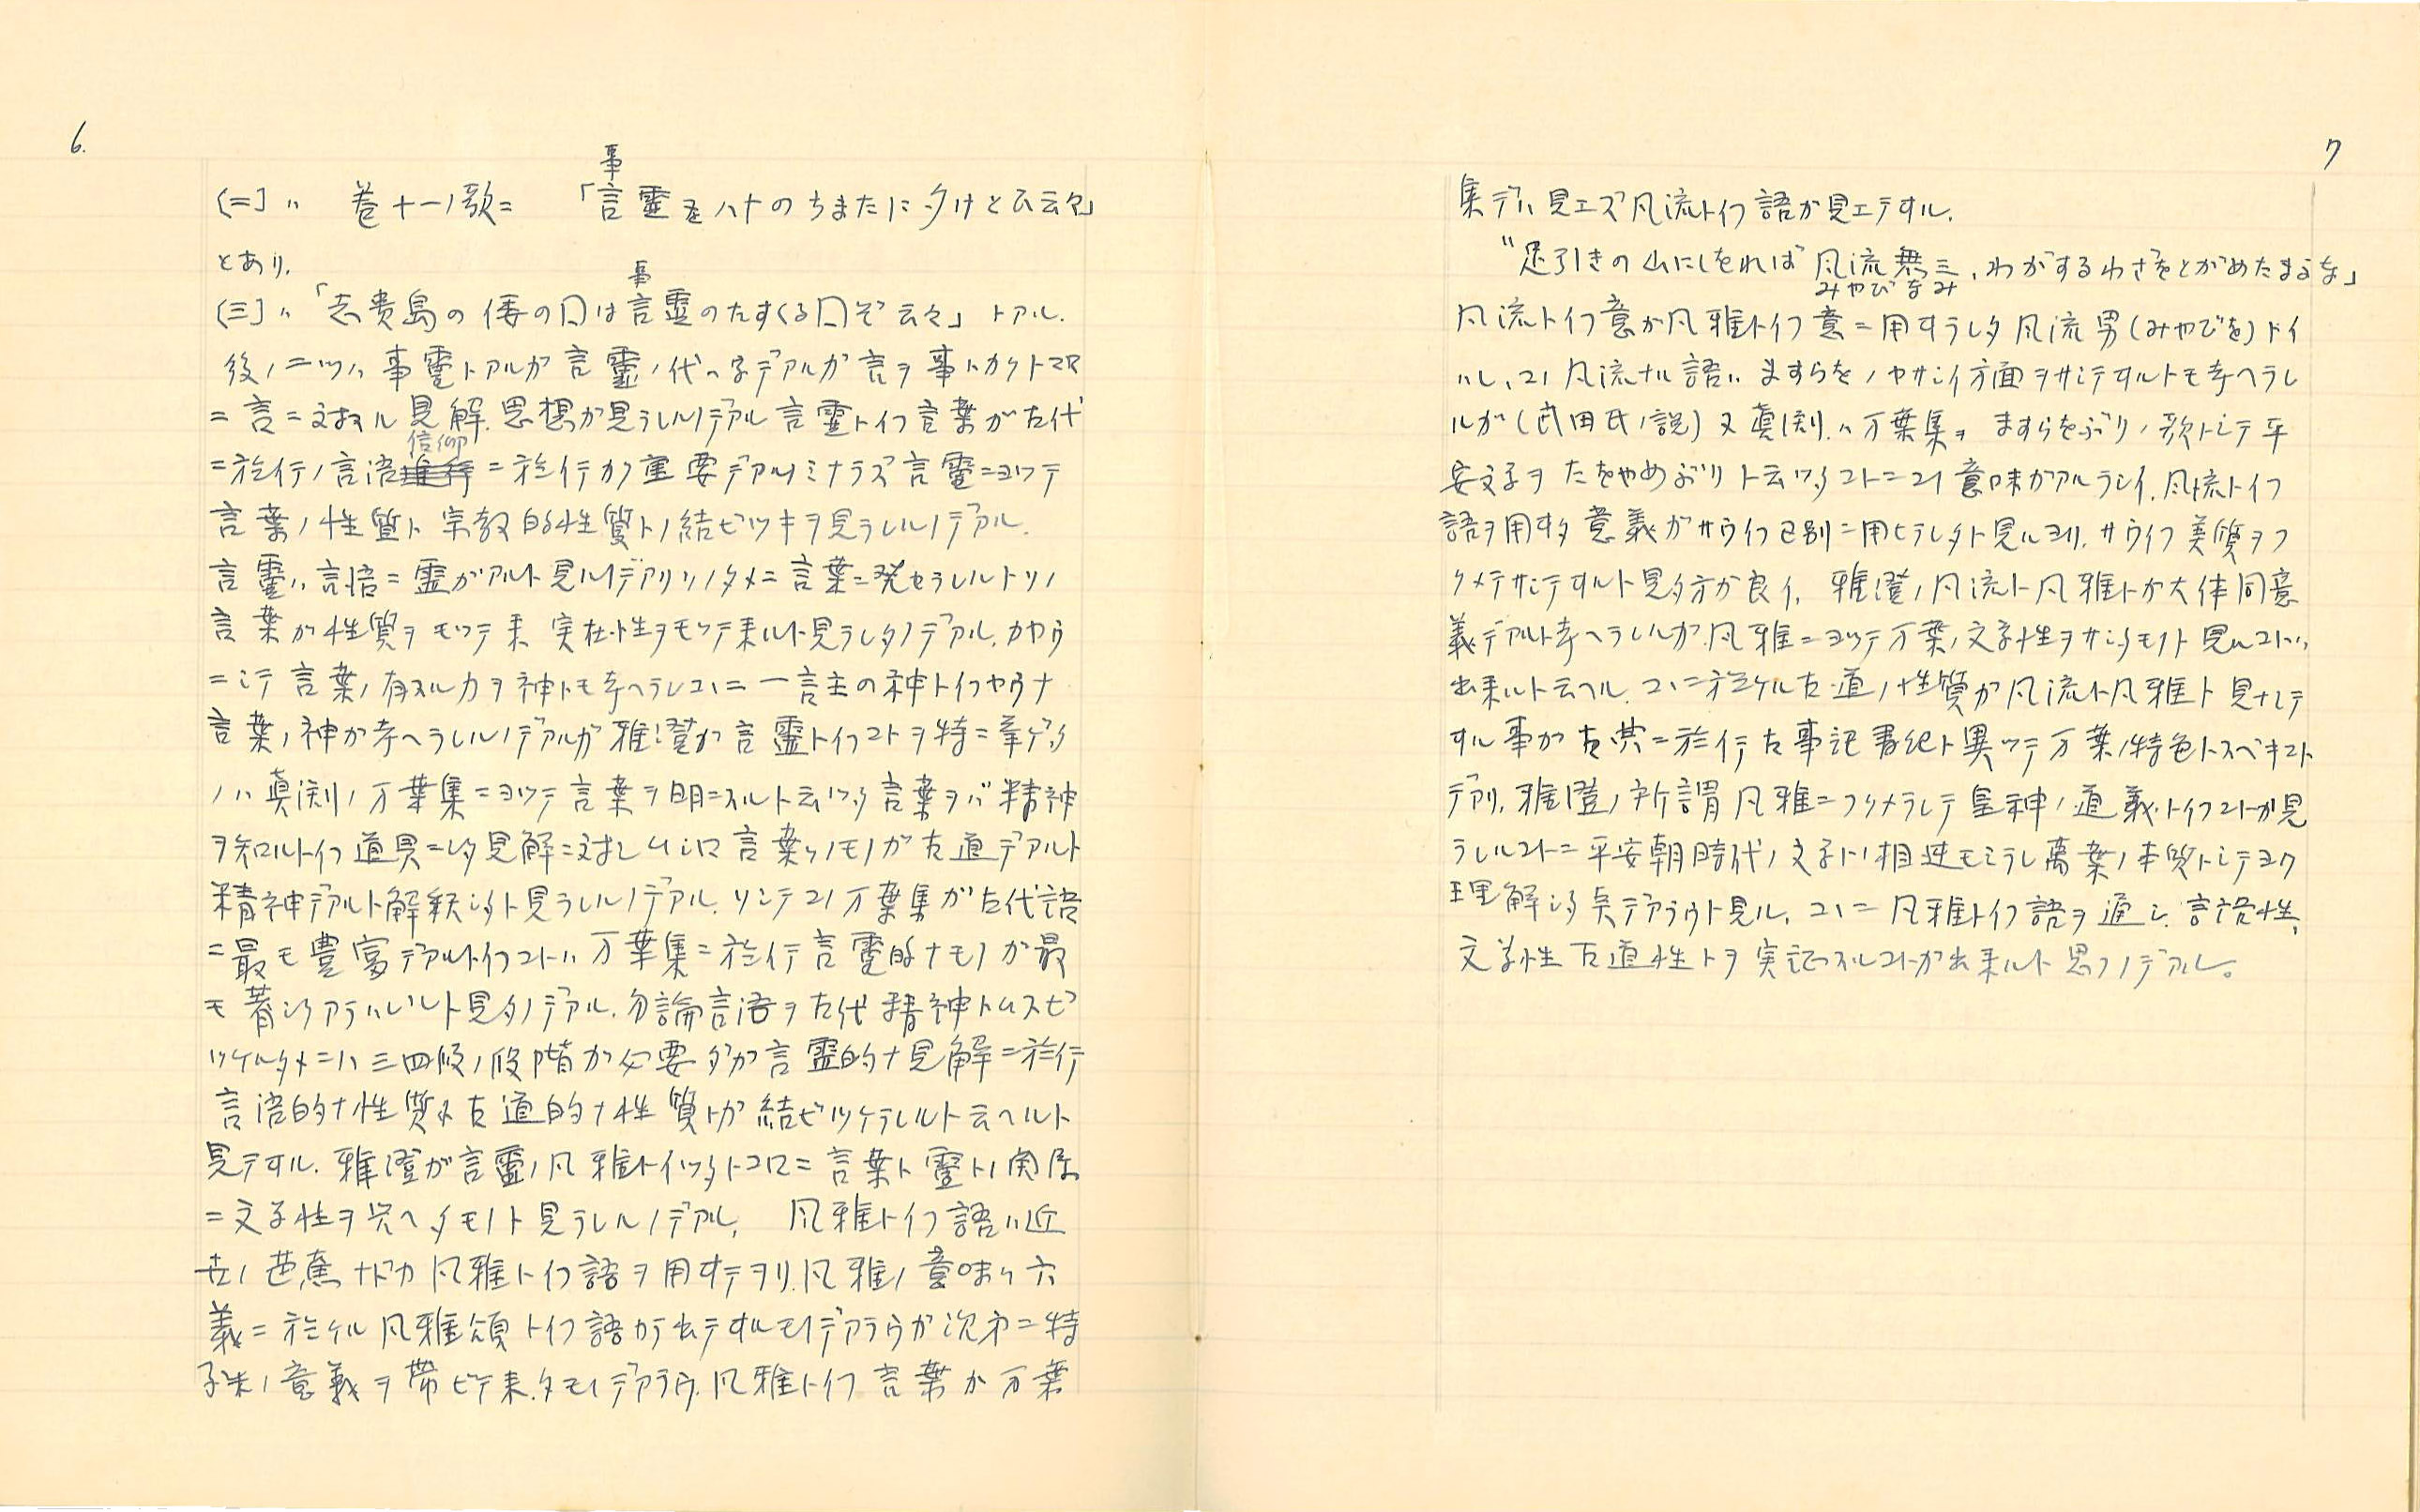 6.
事
(二)ハ 巻十一ノ歌ニ 「言霊をハ十のちまたに夕けとひ云々」
とあり.
事
(三)ハ「志貴島の倭の国は言霊のたすくる国ぞ云々」トアル.
後ノ二ツハ事霊トアルガ言霊ノ代ヘ字デアルガ言ヲ事トカクトコロ
ニ言ニ対スル見解.思想ガ見ラレルノデアル 言霊トイフ言葉ガ古代
信仰
ニ於行ノ言語 ニ於イテカク重要デアルノミナラズ言霊ニヨツテ
言葉ノ性質ト宗教的性質トノ結ビツキヲ見ラレルノデアル.
言霊ハ言語ニ霊ガアルト見ルノデアリソノタメニ言葉ニ発セラレルトソノ
言葉ガ性質ヲモツテ来 実在性ヲモツテ来ルト見ラレタノデアル.カヤウ
ニシテ言葉ノ有スル力ヲ神トモ考ヘラレコヽニ一言主の神トイフヤウナ
言葉ノ神ガ考ヘラレルノデアルガ雅澄ガ言霊トイフコトヲ特ニ挙ゲタ
ノハ真渕ノ万葉集ニヨツテ言葉ヲ明ニスルト云ツタ言葉ヲバ精神
ヲ知ルトイフ道具ニシタ見解ニ対シムシロ言葉ソノモノガ古道デアルト
精神デアルト解釈シタト見ラレルノデアル.ソシテコノ万葉集ガ古代語
ニ最モ豊富デアルトイフコトハ万葉集ニ於イテ言霊的ナモノガ最
モ著シクアラハレルト見タノデアル.勿論言語ヲ古代精神トムスビ
ツケルタメニハ三四段ノ段階ガ必要ダガ言霊的ナ見解ニ於イテ
言語的ナ性質ト古道的ナ性質トガ結ビツケラレルト云ヘルト
見テヰル.雅澄ガ言霊ノ風雅トイツタトコロニ言葉ト霊トノ関係
ニ文学性ヲ与ヘタモノト見ラレルノデアル. 風雅トイフ語ハ近
世ノ芭蕉ナドガ風雅トイフ語ヲ用ヰテヲリ.風雅ノ意味ハ六
義ニ於ケル風雅頌トイフ語カラ出テヰルモノデアラウガ次第ニ特
殊ノ意義ヲ帯ビテ来タモノデアラウ.風雅トイフ言葉ガ万葉
7
集デハ見エズ風流トイフ語ガ見エテヰル.
"足引きの山にしをれば風流無三,わがするわざをとがめたまふな」
みやびなみ
風流トイフ意ガ風雅トイフ意ニ用ヰラレタ風流男(みやびを)トイ
ハレ,コノ風流ナル語ハますらをノヤサシイ方面ヲサシテヰルトモ考ヘラレ
ルガ(武田氏ノ説)又真渕ハ万葉集ヲますらをぶりノ歌トシテ平
安文学ヲたをやめぶりト云ツタコトニコノ意味ガアルラシイ.風流トイフ
語ヲ用ヰタ意義ガサウイフ区別ニ用ヒラレタト見ルヨリ.サウイフ美質ヲフ
クメテサシテヰルト見タ方ガ良イ. 雅澄ノ風流ト風雅トガ大体同意
義デアルト考ヘラレルガ.風雅ニヨツテ万葉ノ文学性ヲサシタモノト見ルコトハ
出来ルト云ヘル.コヽニ於ケル古道ノ性質ガ風流ト風雅ト見ナシテ
ヰル事ガ古典ニ於イテ古事記書紀ト異ツテ万葉ノ特色トスベキコト
デアリ.雅澄ノ所謂風雅ニフクメラレテ皇神ノ道義トイフコトガ見
ラレルコトニ平安朝時代ノ文学トノ相違モミラレ萬葉ノ本質トシテヨク
理解シタ点デアラウト見ル.コヽニ風雅トイフ語ヲ通シ.言語性,
文学性古道性トヲ実証スルコトガ出来ルト思フノデアル。